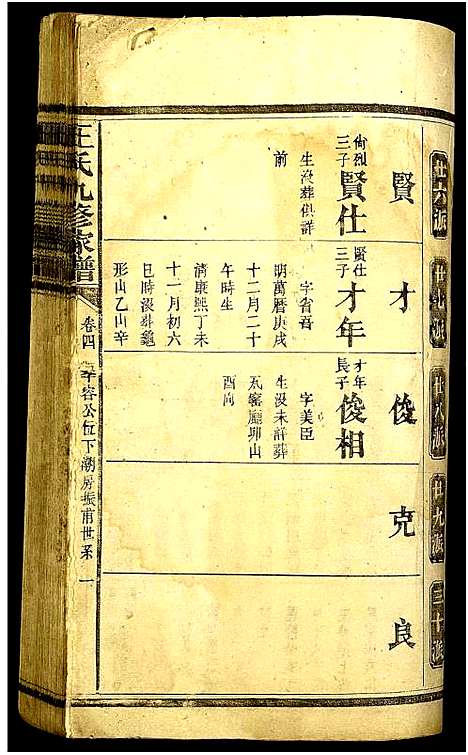 廿六派
廿七派
廿八派
廿九派
三十派
賢
才
俊
克
良
尙烈
三子
賢仕
生沒葬俱詳
前
賢仕
三子
才年
字省吾
明萬曆庚戌
十二月二十
午時生
淸康熙丁未
十一月初六
巳時沒葬龜
形山乙山辛
才年
長子
俊相
字美臣
生沒未詳葬
瓦窑廳卯山
酉向
王氏九修家譜
卷四
容公位下潮房振甫世系
一